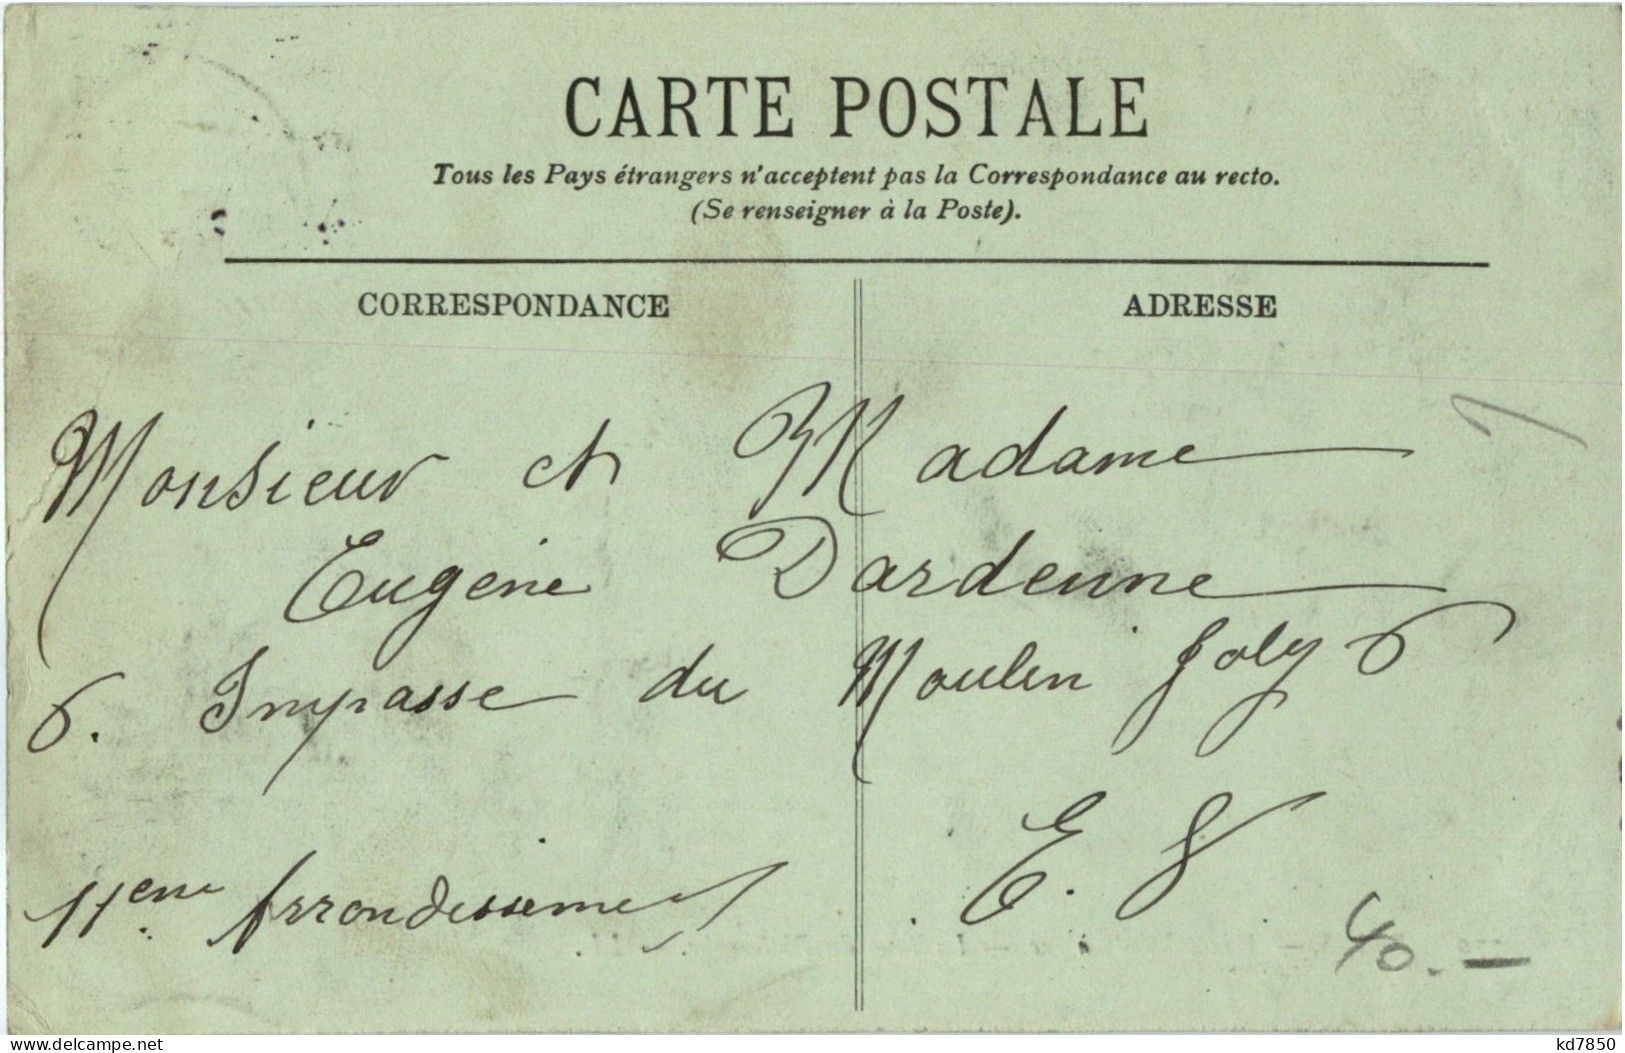 CARTE POSTALE
Tous les Pays étrangers n'acceptent pas la Correspondance au recto.
(Se renseigner à la Poste).
CORRESPONDANCE ADRESSE
Monsieur et Madame
Eugène Dardenne
6. Impasse du Moulin Joly 6
11em Arrondissement E. V
40.-
www.delcampe.net kd7850